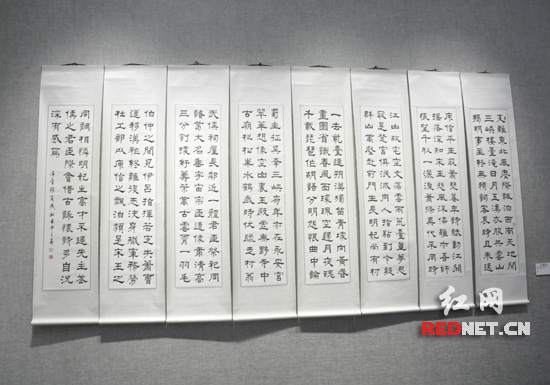 支離東北風塵際漂泊西南天地間
三峽樓臺淹日月五溪衣服共雲山
羯胡事主終無賴詞客哀時且未還
庾信平生最蕭瑟暮年詩賦動江關
搖落深知宋玉悲風流儒雅亦吾師
悵望千秋一灑淚蕭條異代不同時
江山故宅空文藻雲雨荒臺豈夢思
最是楚宮俱泯滅舟人指點到今疑
群山萬壑赴荊門生長明妃尚有村
一去紫臺連朔漠獨留青塚向黃昏
畫圖省識春風面環珮空歸月夜魂
千載琵琶作胡語分明怨恨曲中論
蜀主征吳幸三峽崩年亦在永安宮
翠華想像空山裏玉殿虛無野寺中
古廟杉松巢水鶴歲時伏臘走村翁
武侯祠屋長鄰近一體君臣祭祀同
諸葛大名垂宇宙宗臣遺像肅清高
三分割據紆籌策萬古雲霄一羽毛
伯仲之間見伊呂指揮若定失蕭曹
運移漢祚終難復志決身殲軍務勞
杜工部以庾信之漂泊類是宋玉之
同調相憐明妃生富才不遇先主
侯之君臣際會借古跡懷詩多自況
深有感焉
红网
REDNET.CN